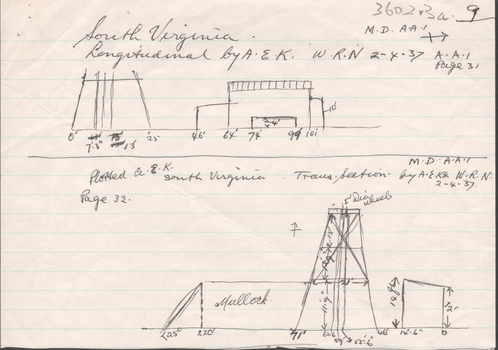 3602.3a. 9
South Virginia.
M.D. A.A.1
Longitudinal by A.E.K. W.R.N 2-4-37 A.A.1
Page 31
10'
0' 7'.3" 13' 25' 46' 64' 74' 99' 101'
M.D. A.A.1
Plotted A.E.K. South Virginia. Trans. Section by A.E.K & W.R.N.
2-4-37.
Page 32.
Mullock
12'
225' 220' 71' 46' 14'.6" 0